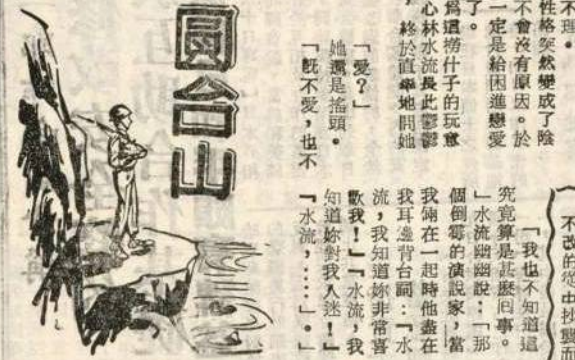 不理。
性格突然變成了陰
不會沒有原因。於
一定是給困進戀愛
了。
爲這撈什子的玩意
心林水流長此鬱鬱
，終於直率地問她
「愛？」
她還是搖頭。
「既不愛，也不
不改的從中抄襲而
「我也不知道這
究竟算是甚麽囘事。
」水流幽幽說：「那
個倒霉的演說家，當
我倆在一起時他盡在
我耳邊背台詞：『水
流，我知道妳非常喜
歡我！』『水流，我
知道妳對我入迷！』
『水流，……』。」
圓台山